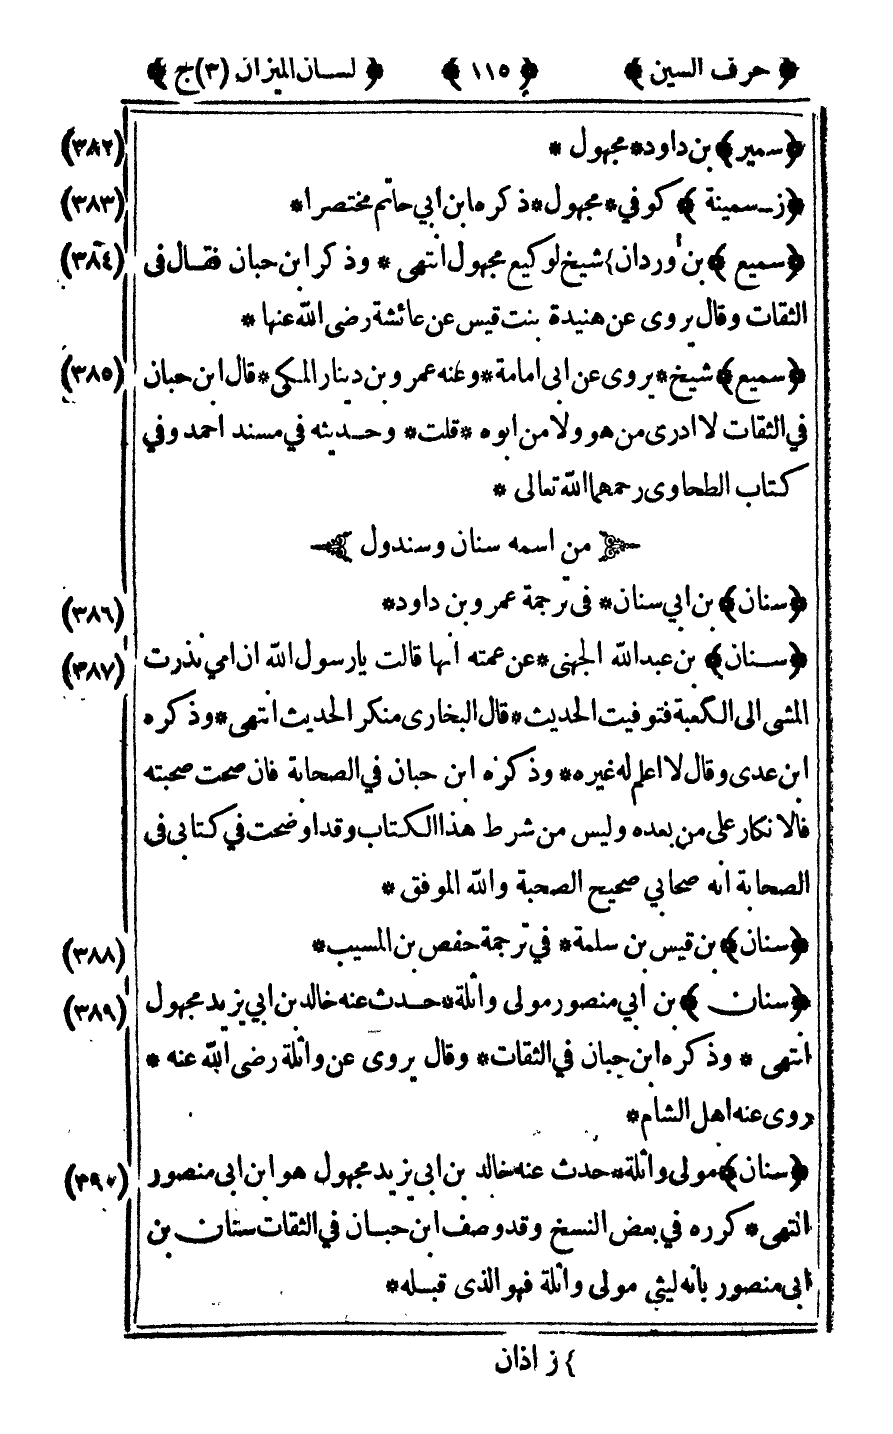 ﴿ حرف السين ﴾ ﴿ ١١٥ ﴾ ﴿ لسان الميزان (٣) ج ﴾
(٣٨٢) ﴿ سمير ﴾ بن داود * مجهول *
(٣٨٣) ﴿ ز ـ سمينة ﴾ كوفي * مجهول * ذكره ابن ابي حاتم مختصرا *
(٣٨٤) ﴿ سميع ﴾ بن وردان } شيخ لوكيع مجهول انتهى * وذكر ابن حبان فقال فى
الثقات وقال يروى عن هنيدة بنت قيس عن عائشة رضى الله عنها *
(٣٨٥) ﴿ سميع ﴾ شيخ * يروى عن ابى امامة * وعنه عمرو بن دينار المكى * قال ابن حبان
في الثقات لا ادرى من هو ولا من ابوه * قلت * وحديثه في مسند احمد وفي
كتاب الطحاوى رحمهما الله تعالى *
من اسمه سنان وسندول
(٣٨٦) ﴿ سنان ﴾ بن ابي سنان * فى ترجمة عمرو بن داود *
(٣٨٧) ﴿ سنان ﴾ بن عبدالله الجهنى * عن عمته انها قالت يا رسول الله ان امي نذرت
المشى الى الكعبة فتوفيت الحديث * قال البخارى منكر الحديث انتهى * وذكره
ابن عدى وقال لا اعلم له غيره * وذكره ابن حبان في الصحابة فان صحت صحبته
فالانكار على من بعده وليس من شرط هذا الكتاب وقد اوضحت في كتابى فى
الصحابة انه صحابي صحيح الصحبة والله الموفق *
(٣٨٨) ﴿ سنان ﴾ بن قيس بن سلمة * في ترجمة حفص بن المسيب *
(٣٨٩) ﴿ سنان ﴾ بن ابي منصور مولى واثلة * حدث عنه خالد بن ابي يزيد مجهول
انتهى * وذكره ابن حبان في الثقات * وقال يروى عن واثلة رضى الله عنه *
روى عنه اهل الشام *
(٣٩٠) ﴿ سنان ﴾ مولى واثلة * حدث عنه خالد بن ابى يزيد مجهول هو ابن ابى منصور
انتهى * كرره في بعض النسخ وقد وصف ابن حبان في الثقات سنان بن
ابى منصور بانه ليثي مولى واثلة فهو الذى قبله *
} ز اذان